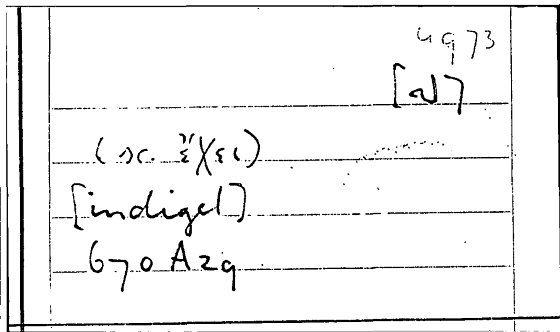 4973
(sc. ἔχει)
[indiget]
670 A29